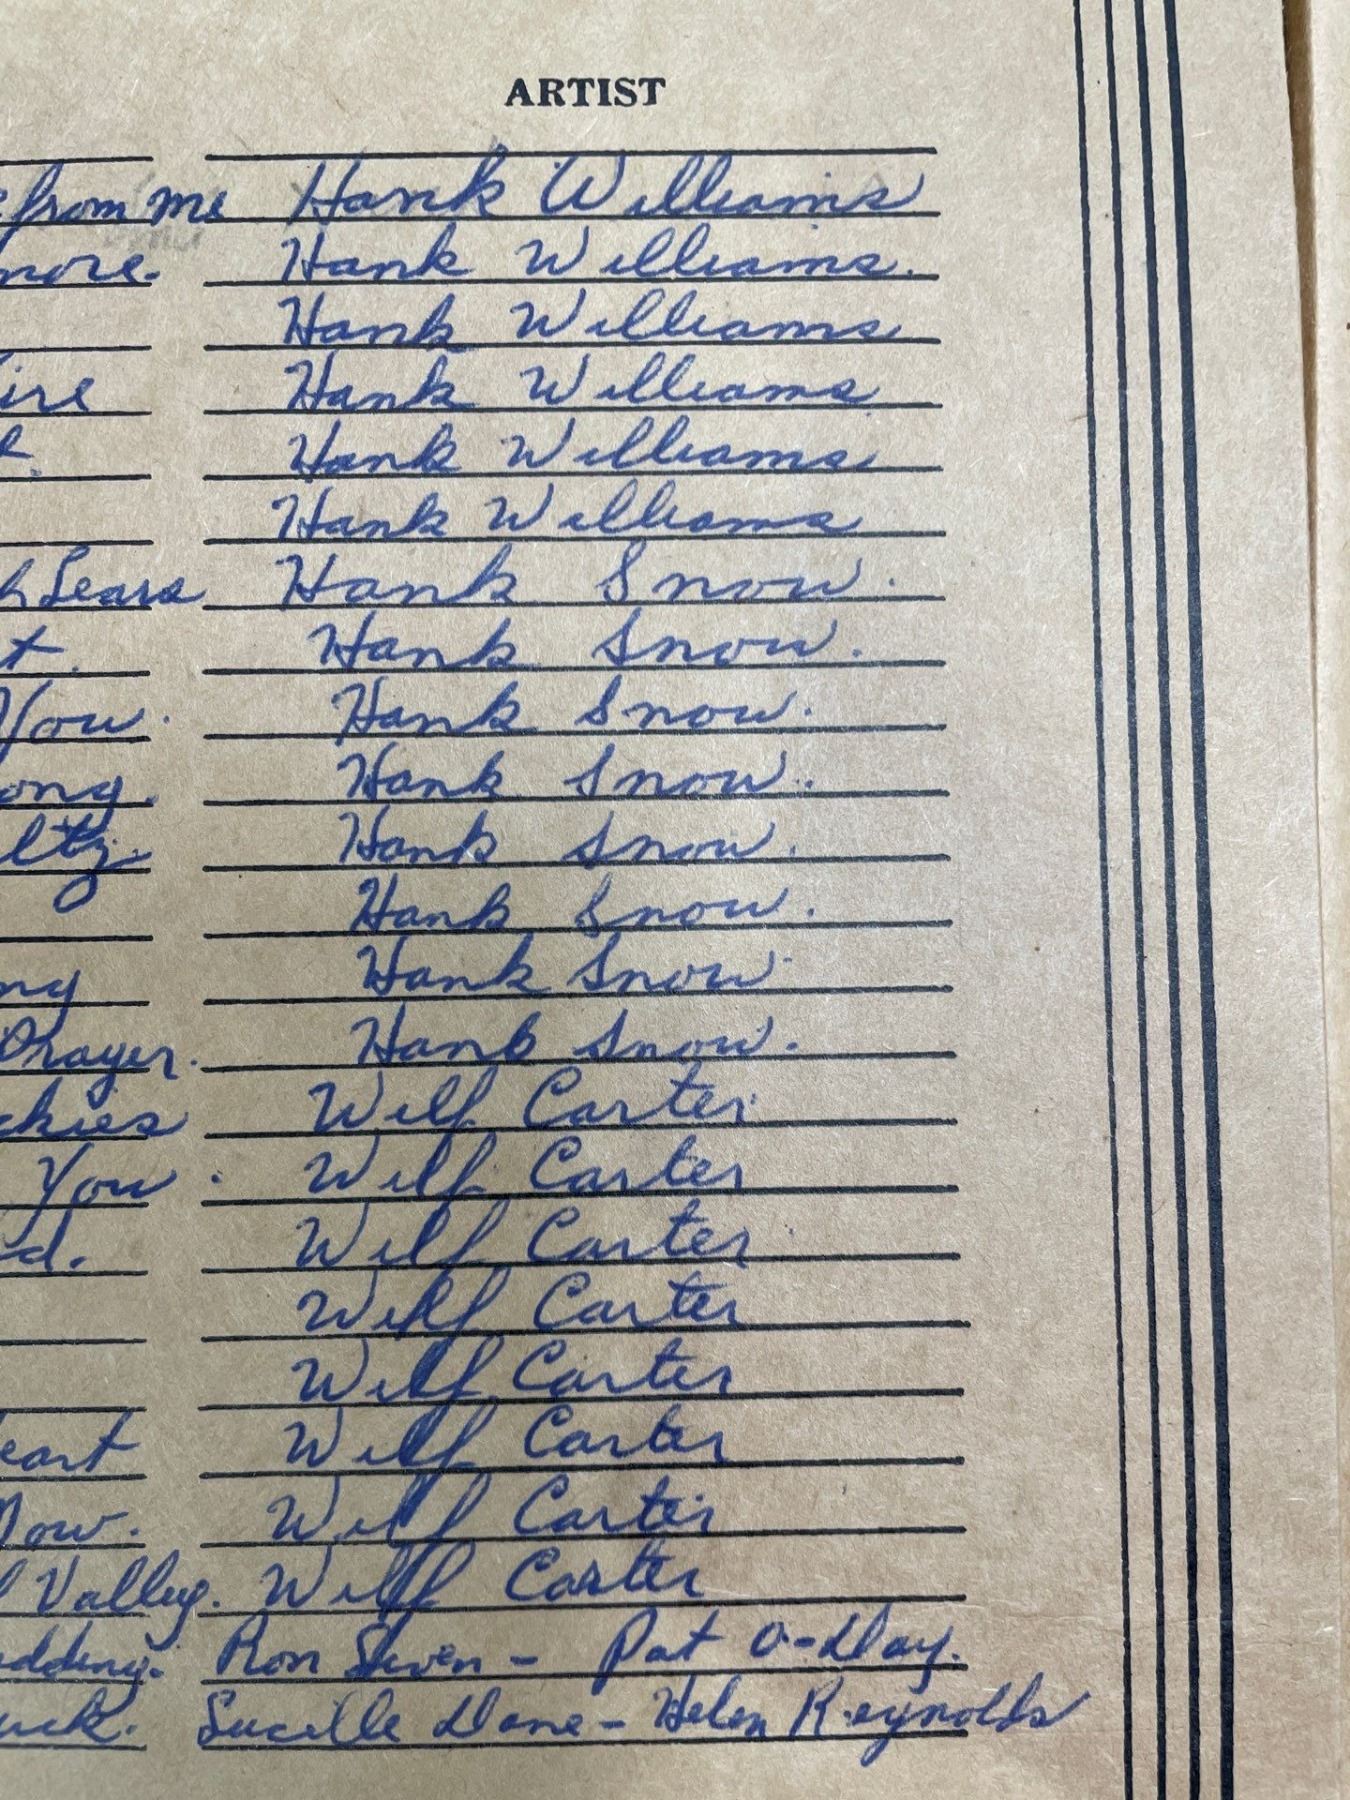 ARTIST
from me Hank Williams
more. Hank Williams.
Hank Williams
ire Hank Williams
Hank Williams
Hank Williams
h Tears Hank Snow.
t. Hank Snow.
You. Hank Snow.
ong. Hank Snow.
ltz. Hank Snow.
Hank Snow.
ng Hank Snow.
Prayer. Hank Snow.
ckies Wilf Carter
You. Wilf Carter
d. Wilf Carter
Wilf Carter
Wilf Carter
eart Wilf Carter
Now. Wilf Carter
l Valley. Wilf Carter
edding. Ron - Pat O-Day.
uck. Lucille Dane - Helen Reynolds